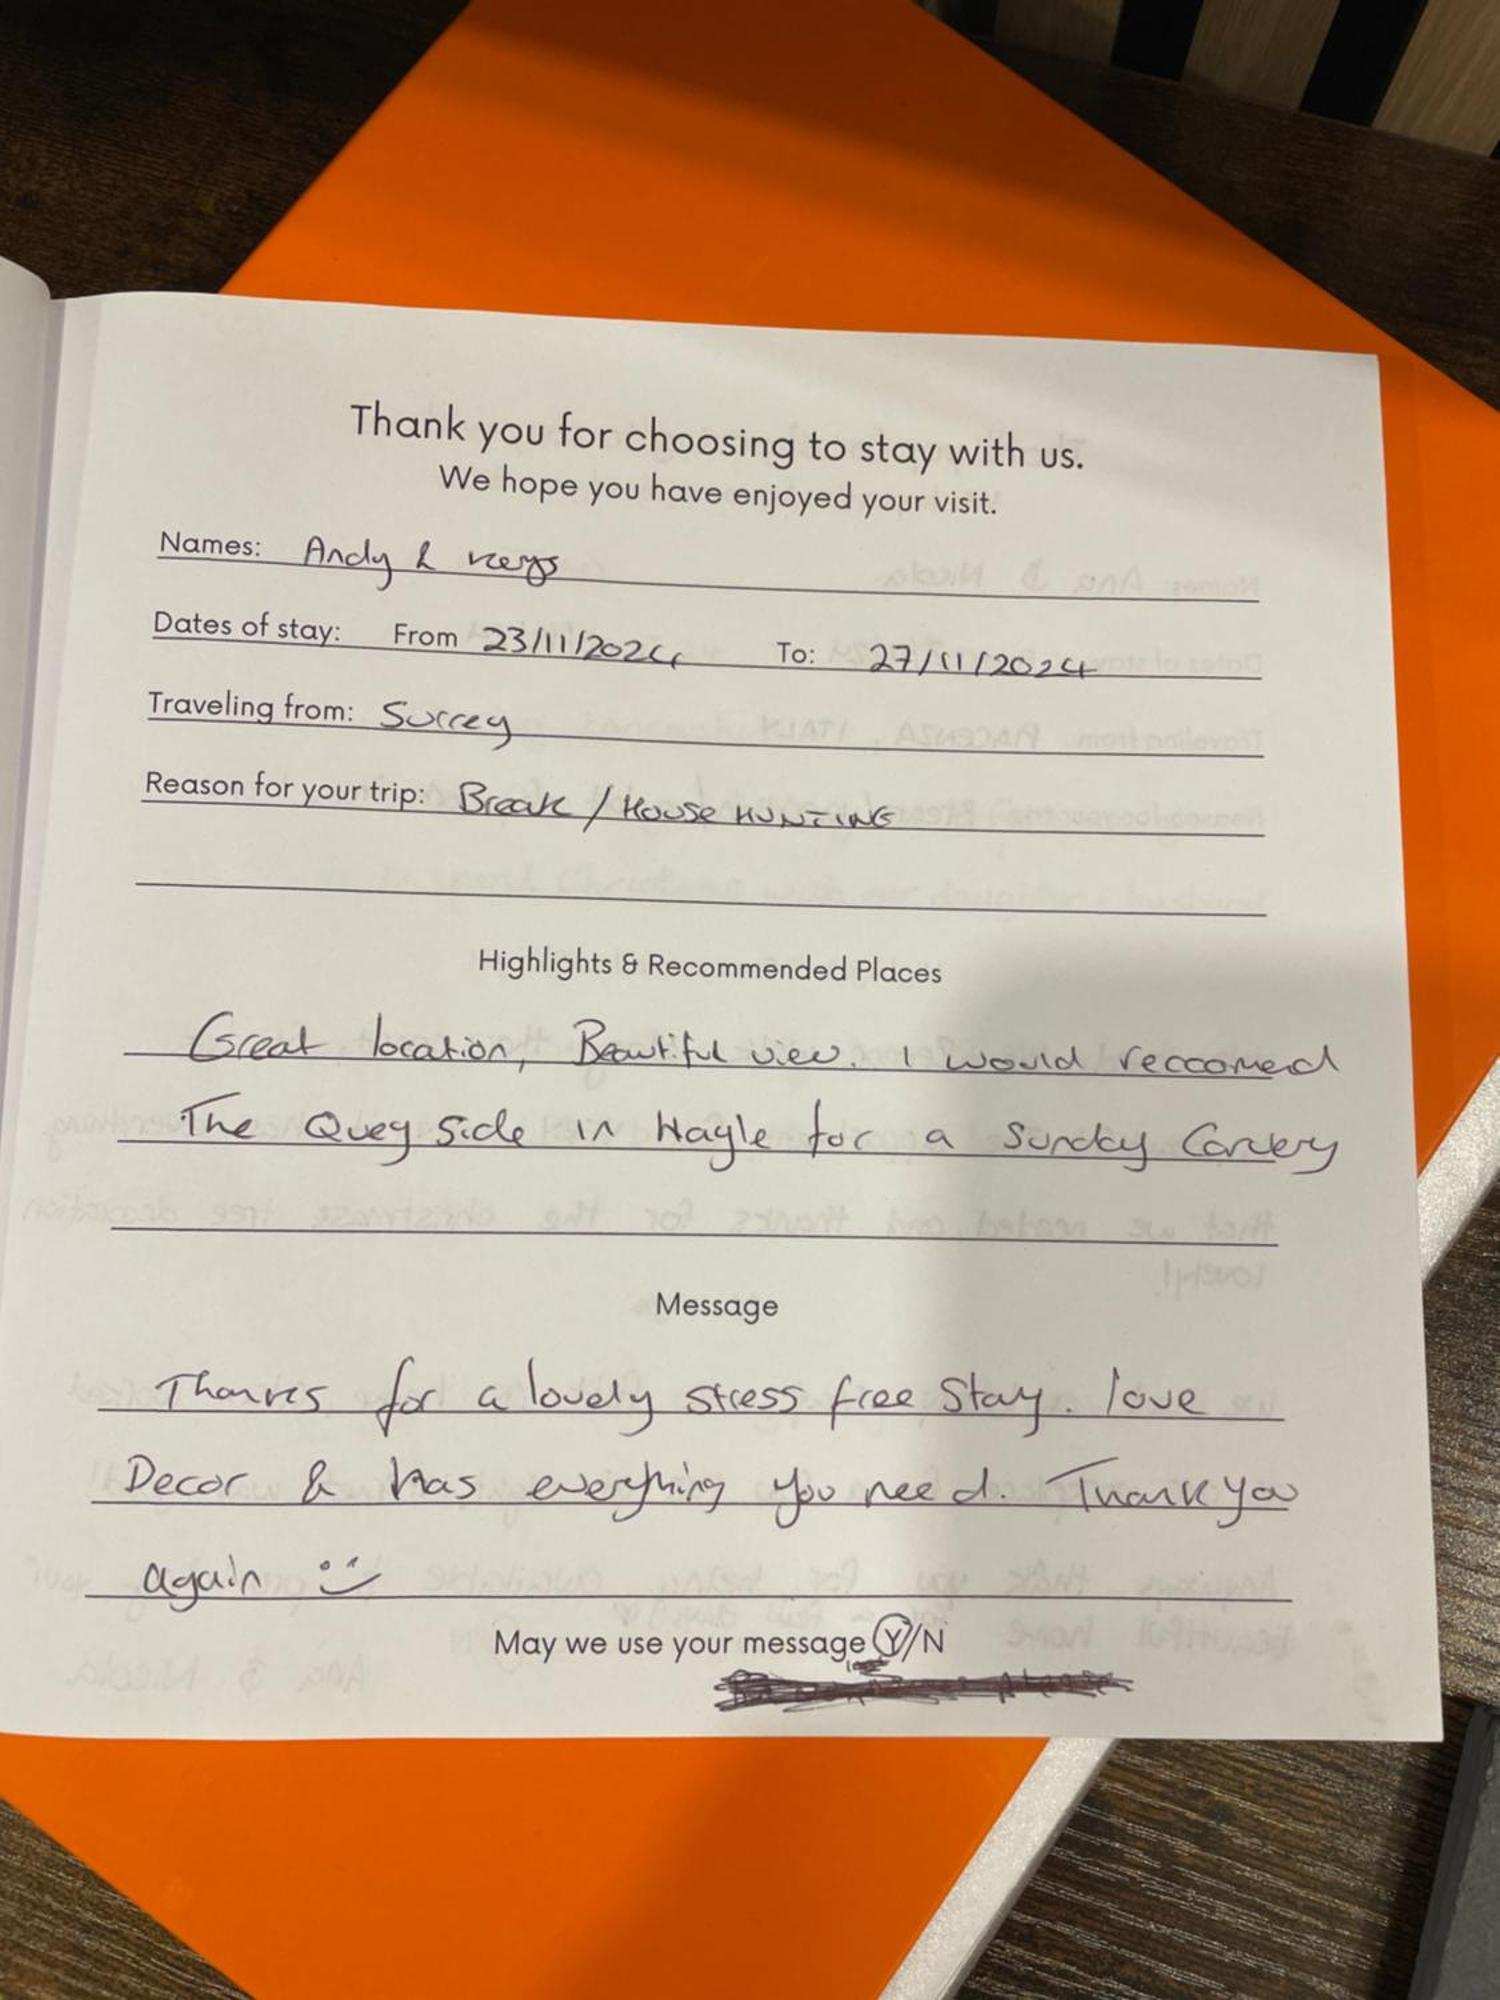 Thank you for choosing to stay with us.
We hope you have enjoyed your visit.
Names: Andy &
Dates of stay: From 23/11/2024 To: 27/11/2024
Traveling from: Surrey
Reason for your trip: Break / House HUNTING
Highlights & Recommended Places
Great location, Beautiful view. I would reccomend
The Quey side in Hayle for a Sunday Carvery
Message
Thanks for a lovely stress free Stay. love
Decor & has everything you need. Thank you
again
May we use your message Y/N